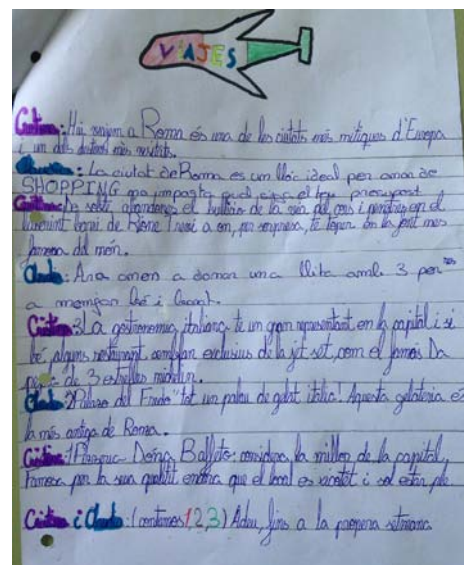 VIAJES
Cristina: Hui viajem a Roma és una de les ciutats més mítiques d'Europa
i un dels més visitats.
Claudia: La ciutat de Roma es un lloc ideal per anar de
SHOPPING no importa qual siga el teu presupost
Cristina: De sobte, abandones el bullici de la
barri de Rione Trevi a on, per sorpresa, te topes en la font mes
famosa del món.
Claudia: Ara anem a donar una llista amb 3 per
a menjar bé i barat.
Cristina: 3 La gastronomia italiana te un gran representant en la capital i si
bé, alguns restaurant exclusius de la jet set, com el famós Da
de 3 estrelles michelin.
Claudia: 2 Palazo del Fredo "tot un palau de gelat italià! Aquesta gelateria es
la més antiga de Roma.
Cristina: 1 Baffeto: considera la millor de la capital,
famosa per la sua qualitat encara que el local es i sol estar ple
Cristina i Claudia: (contamos 1,2,3) Adeu, fins a la propera setmana